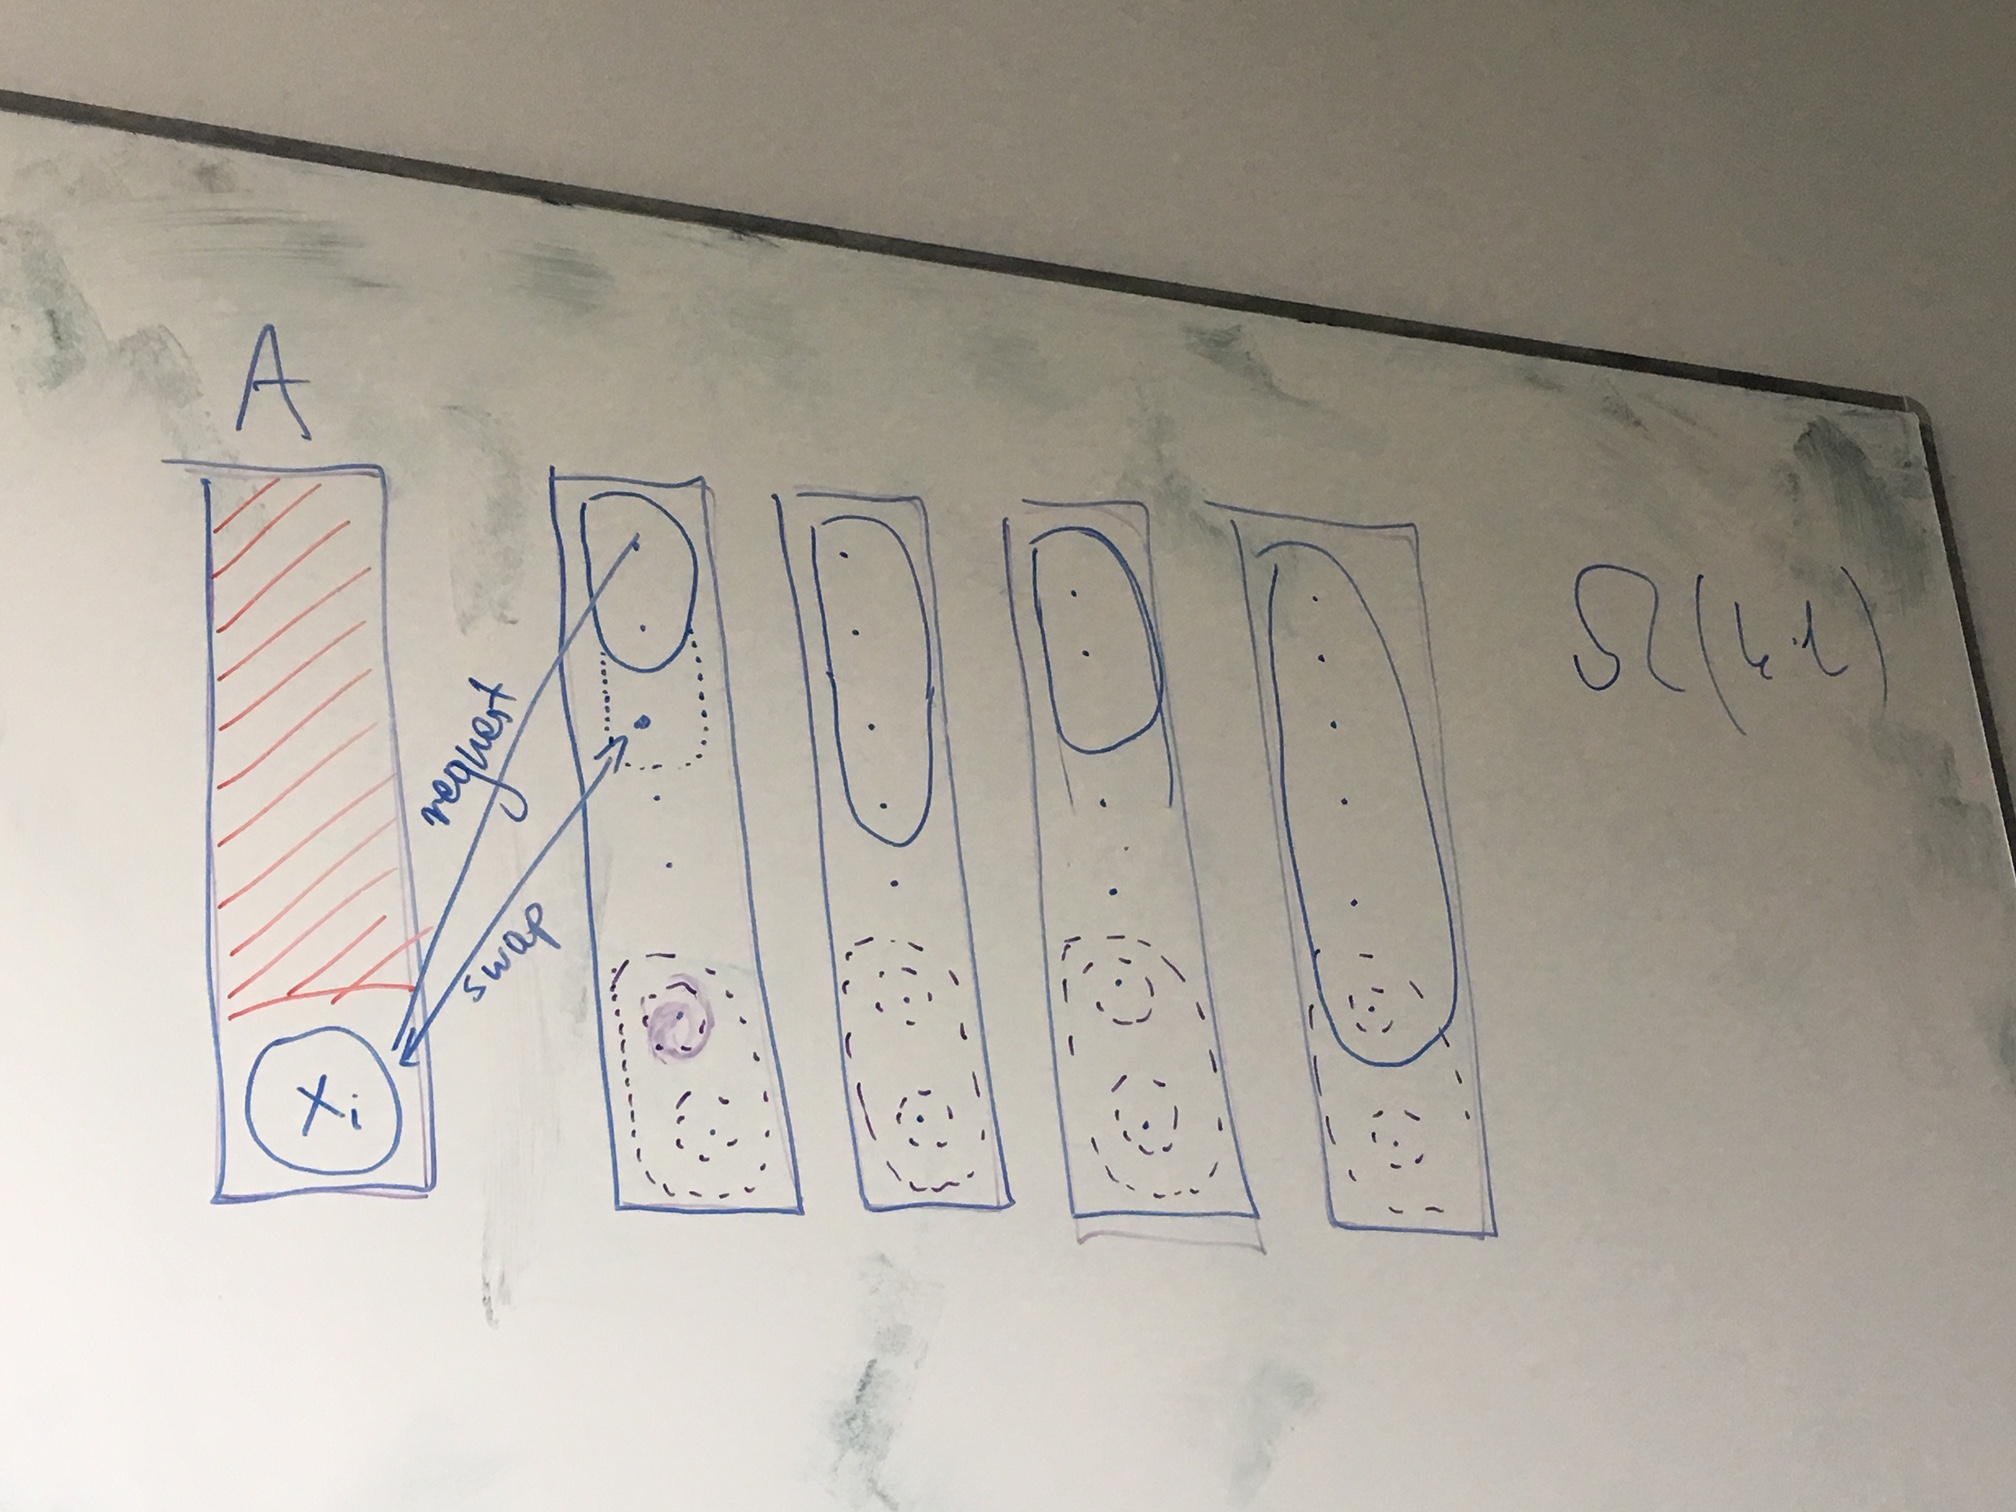 A
request
swap
Xi
Ω(k·l)